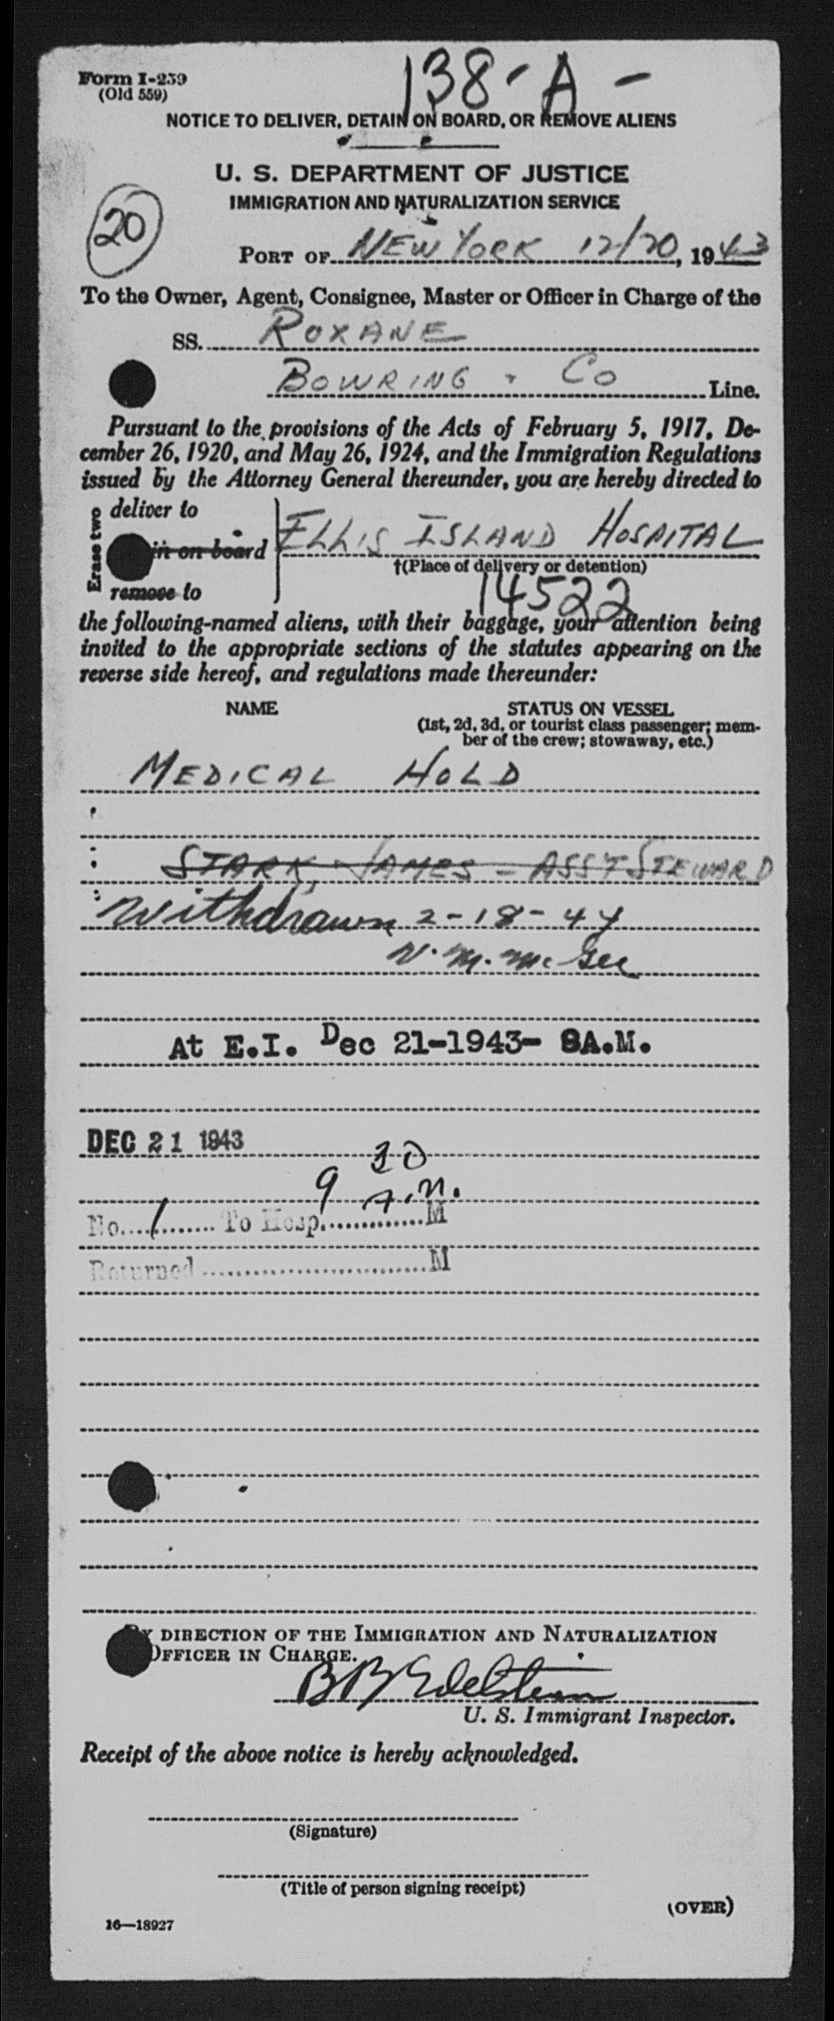 Form I-259
(Old 559)
138-A-
NOTICE TO DELIVER, DETAIN ON BOARD, OR REMOVE ALIENS
U. S. DEPARTMENT OF JUSTICE
IMMIGRATION AND NATURALIZATION SERVICE
20
PORT OF NEW YORK 12/20, 1943
To the Owner, Agent, Consignee, Master or Officer in Charge of the
SS. ROXANE
BOWRING & CO Line.
Pursuant to the provisions of the Acts of February 5, 1917, De-
cember 26, 1920, and May 26, 1924, and the Immigration Regulations
issued by the Attorney General thereunder, you are hereby directed to
Erase two
deliver to
in on board ELLIS ISLAND HOSPITAL
†(Place of delivery or detention)
remove to
14522
the following-named aliens, with their baggage, your attention being
invited to the appropriate sections of the statutes appearing on the
reverse side hereof, and regulations made thereunder:
NAME STATUS ON VESSEL
(1st, 2d, 3d, or tourist class passenger; mem-
ber of the crew; stowaway, etc.)
MEDICAL HOLD
STARK, JAMES - ASS'T STEWARD
Withdrawn 2-18-44
V. M. McGee
At E.I. Dec 21-1943- 8A.M.
DEC 21 1943
9 30 A.M.
No. 1 To Hosp. M
Returned M
BY DIRECTION OF THE IMMIGRATION AND NATURALIZATION
OFFICER IN CHARGE.
B B Edelstein
U. S. Immigrant Inspector.
Receipt of the above notice is hereby acknowledged.
(Signature)
(Title of person signing receipt)
(OVER)
16—18927